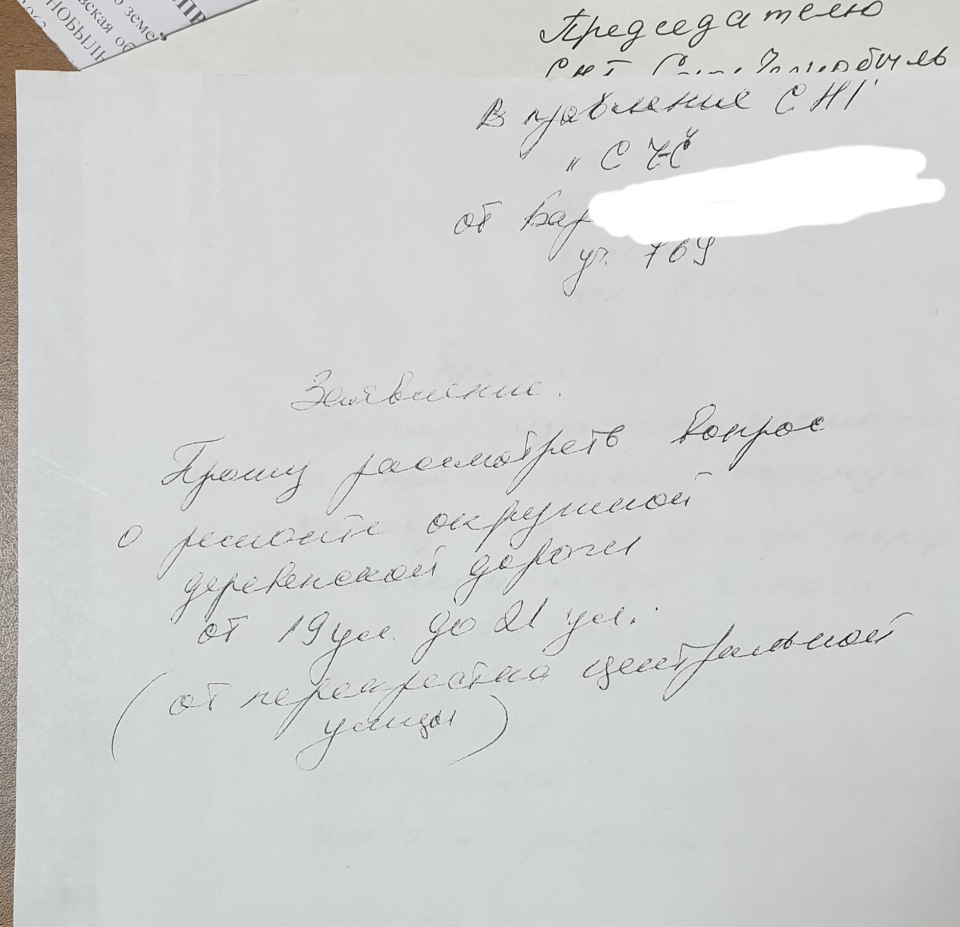 ПР
о земе
вская об
НОБЫЛЬ
Председателю
СНТ Союз Чернобыль
В правление СНТ
„ С ЧС
от Бар
уч. 769
Заявление.
Прошу рассмотреть вопрос
о ремонте окружной
деревенской дороги
от 19 ул. до 21 ул.
(от перекрестка центральной
улицы)